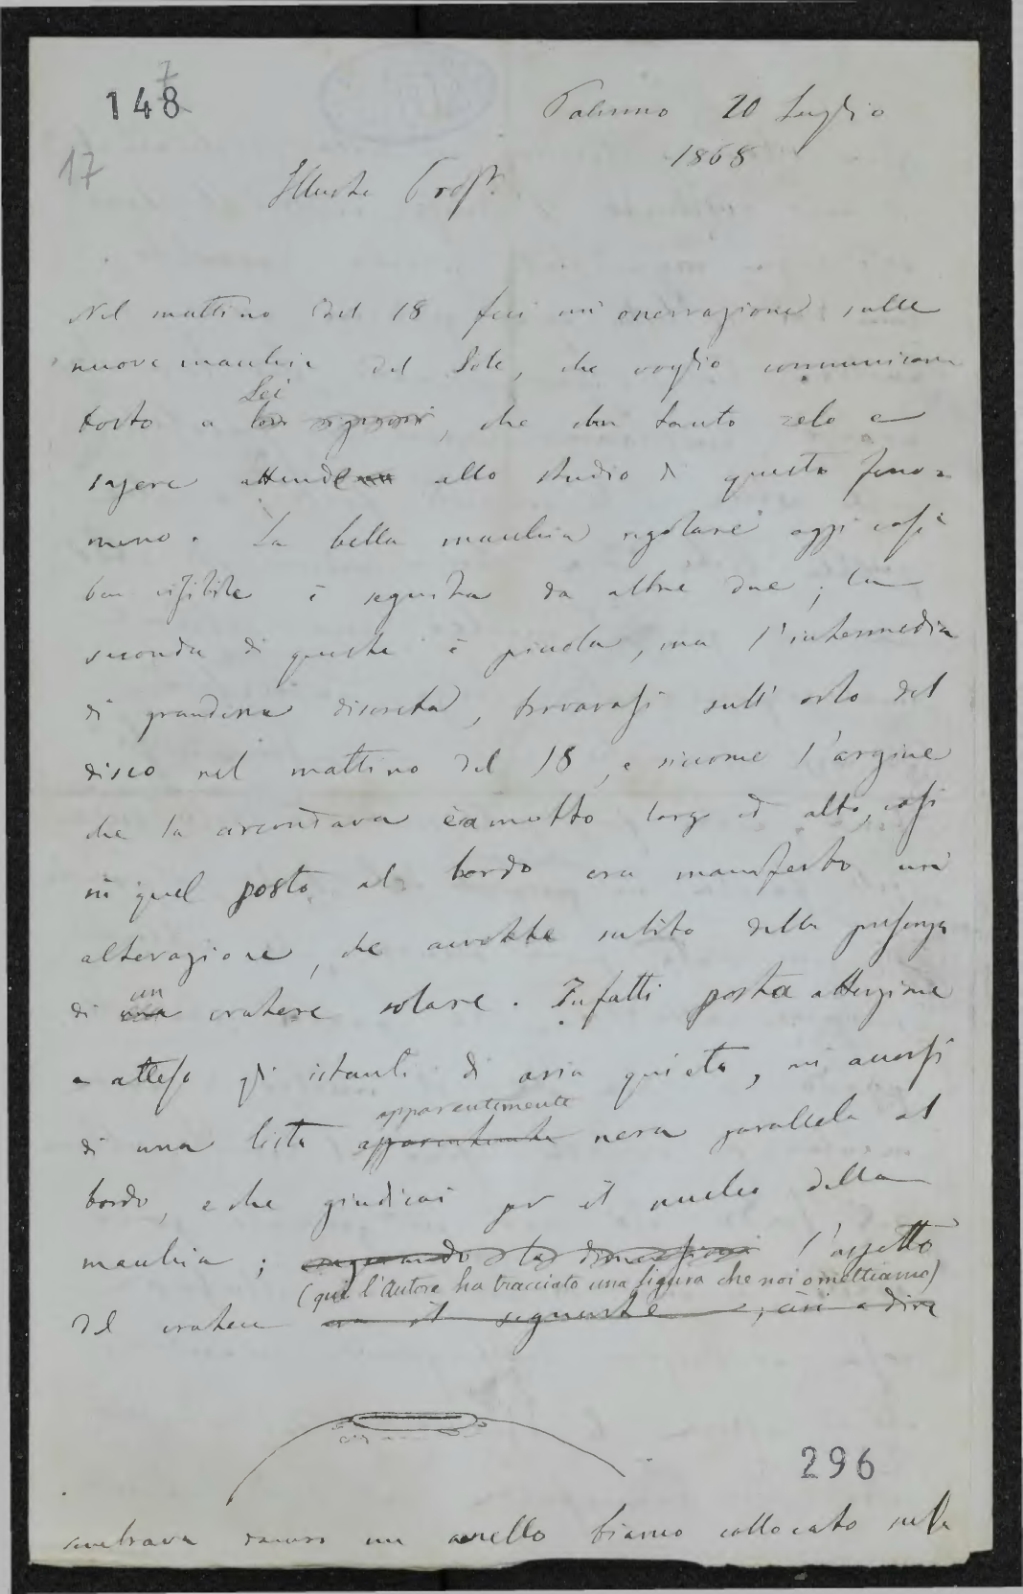 148
7
17
Palermo 20 Luglio
1868
Illustre Profr.
Nel mattino del 18 feci un'osservazione sulle
nuove macchie del Sole, che voglio comunicare
tosto a Lei, che con tanto zelo e
sapere attende allo studio di questo feno-
meno. La bella macchia regolare oggi così
ben visibile è seguita da altre due; la
seconda di queste è piccola, ma l'intermedia
di grandezza discreta, trovavasi sull'orlo del
disco nel mattino del 18, e siccome l'argine
che la circondava era molto largo ed alto, così
in quel posto al bordo era manifesto un'
alterazione, che avvertì subito della presenza
di un cratere solare. Infatti posta attenzione
e atteso gli istanti di aria quieta, mi accorsi
di una lista apparentemente nera parallela al
bordo, e che giudicai per il nucleo della
macchia; riguardo la dimensione l'aspetto
(qui l'Autore ha tracciato una figura che noi omettiamo)
del cratere era il seguente; cioè a dire
296
sembrava davvero un anello bianco collocato sulla